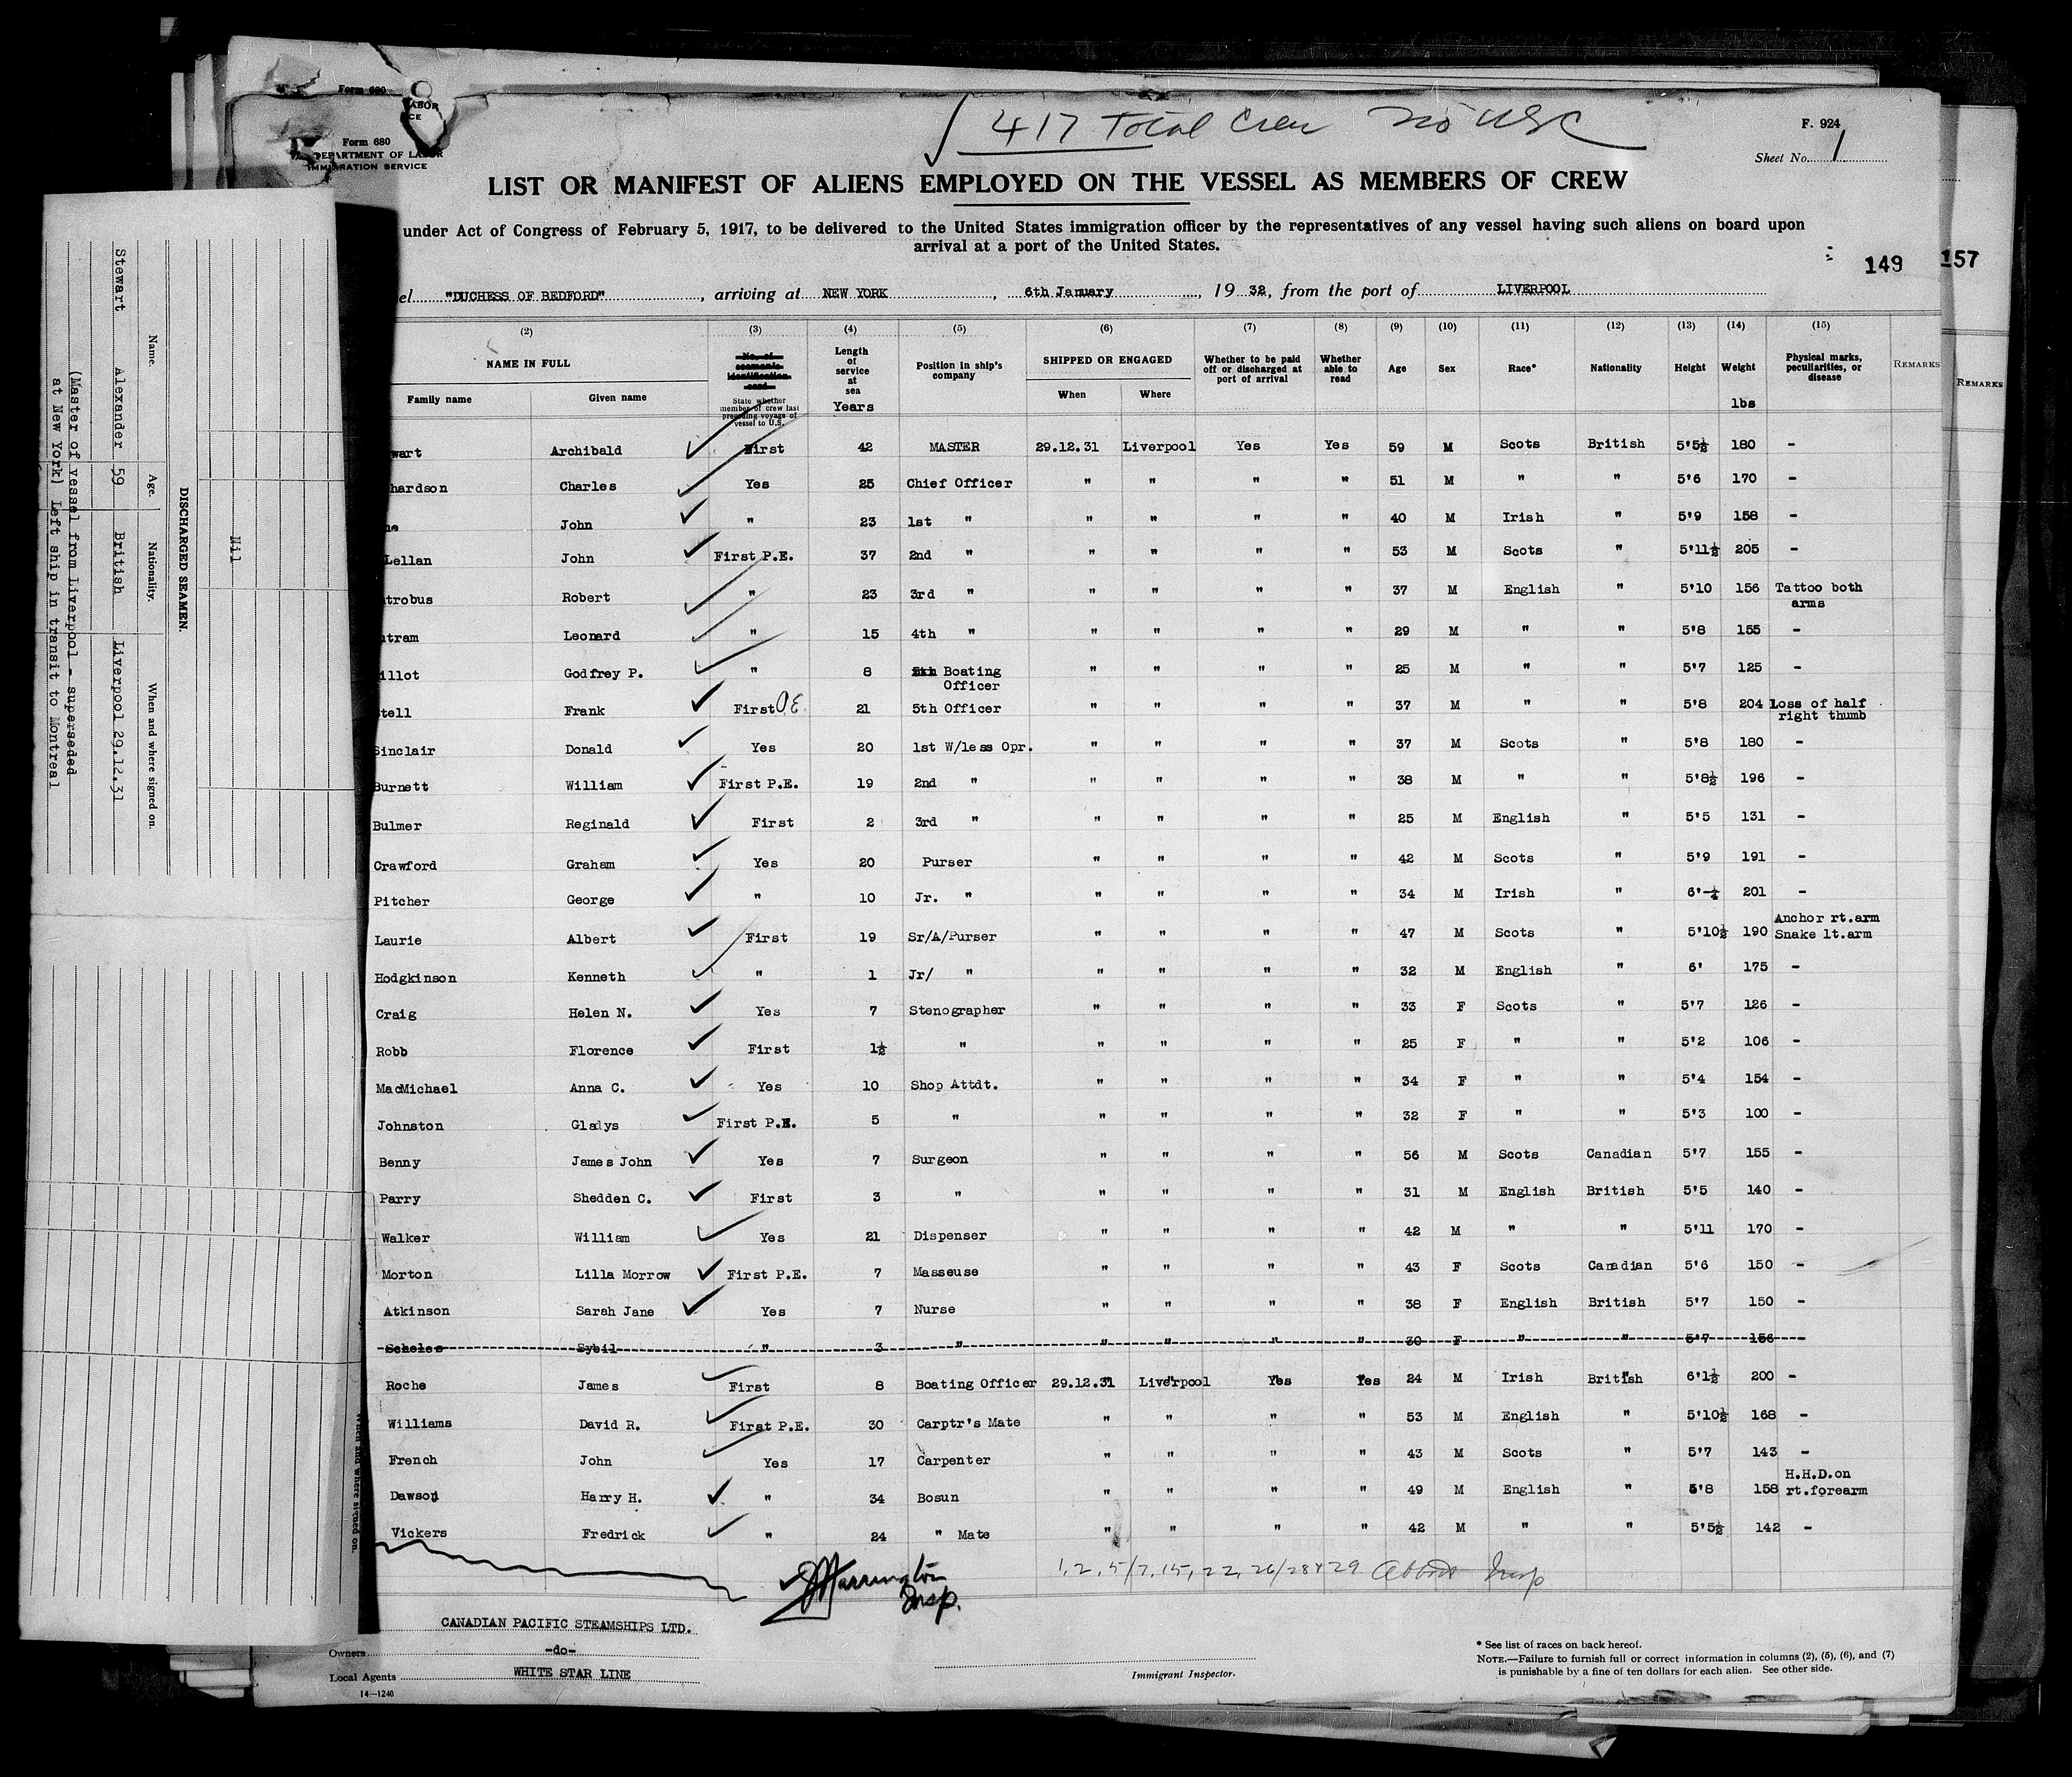 Form 680
ABOR
CE
Form 680
DEPARTMENT OF LABOR
IMMIGRATION SERVICE
417 Total Crew no USC
F. 924
Sheet No. 1
LIST OR MANIFEST OF ALIENS EMPLOYED ON THE VESSEL AS MEMBERS OF CREW
under Act of Congress of February 5, 1917, to be delivered to the United States immigration officer by the representatives of any vessel having such aliens on board upon
arrival at a port of the United States.
149 157
el "DUCHESS OF BEDFORD", arriving at NEW YORK, 6th January, 19 32, from the port of LIVERPOOL
(2) (3) (4) (5) (6) (7) (8) (9) (10) (11) (12) (13) (14) (15)
NAME IN FULL
Family name Given name
No. of seaman's identification card
State whether member of crew last preceding voyage of vessel to U.S.
Length of service at sea
Years
Position in ship's company
SHIPPED OR ENGAGED
When Where
Whether to be paid off or discharged at port of arrival
Whether able to read
Age Sex Race* Nationality Height Weight
lbs
Physical marks, peculiarities, or disease
REMARKS REMARKS
wart Archibald First 42 MASTER 29.12.31 Liverpool Yes Yes 59 M Scots British 5'5½ 180 -
hardson Charles Yes 25 Chief Officer " " " " 51 M " " 5'6 170 -
ne John " 23 1st " " " " " 40 M Irish " 5'9 158 -
Lellan John First P.E. 37 2nd " " " " " 53 M Scots " 5'11½ 205 -
trobus Robert " 23 3rd " " " " " 37 M English " 5'10 156 Tattoo both arms
tram Leonard " 15 4th " " " " " 29 M " " 5'8 155 -
illot Godfrey P. " 8 5th Boating Officer " " " " 25 M " " 5'7 125 -
tell Frank First O.E. 21 5th Officer " " " " 37 M " " 5'8 204 Loss of half right thumb
Sinclair Donald Yes 20 1st W/less Opr. " " " " 37 M Scots " 5'8 180 -
Burnett William First P.E. 19 2nd " " " " " 38 M " " 5'8½ 196 -
Bulmer Reginald First 2 3rd " " " " " 25 M English " 5'5 131 -
Crawford Graham Yes 20 Purser " " " " 42 M Scots " 5'9 191 -
Pitcher George " 10 Jr. " " " " " 34 M Irish " 6'-¼ 201 -
Laurie Albert First 19 Sr/A/Purser " " " " 47 M Scots " 5'10½ 190 Anchor rt.arm Snake lt.arm
Hodgkinson Kenneth " 1 Jr/ " " " " " 32 M English " 6' 175 -
Craig Helen N. Yes 7 Stenographer " " " " 33 F Scots " 5'7 126 -
Robb Florence First 1½ " " " " " 25 F " " 5'2 106 -
MacMichael Anna C. Yes 10 Shop Attdt. " " " " 34 F " " 5'4 154 -
Johnston Gladys First P.E. 5 " " " " " 32 F " " 5'3 100 -
Benny James John Yes 7 Surgeon " " " " 56 M Scots Canadian 5'7 155 -
Parry Shedden C. First 3 " " " " " 31 M English British 5'5 140 -
Walker William Yes 21 Dispenser " " " " 42 M " " 5'11 170 -
Morton Lilla Morrow First P.E. 7 Masseuse " " " " 43 F Scots Canadian 5'6 150 -
Atkinson Sarah Jane Yes 7 Nurse " " " " 38 F English British 5'7 150 -
Scholes Sybil " 3 " " " " " 30 F " " 5'7 156 -
Roche James First 8 Boating Officer 29.12.31 Liverpool Yes Yes 24 M Irish British 6'1½ 200 -
Williams David R. First P.E. 30 Carptr's Mate " " " " 53 M English " 5'10½ 168 -
French John Yes 17 Carpenter " " " " 43 M Scots " 5'7 143 -
Dawson Harry H. " 34 Bosun " " " " 49 M English " 5'8 158 H.H.D.on rt.forearm
Vickers Fredrick " 24 " Mate " " " " 42 M " " 5'5½ 142 -
Harrington
Insp.
1, 2, 5/7, 15, 22, 26/28 & 29 Insp
CANADIAN PACIFIC STEAMSHIPS LTD.
Owners -do-
Local Agents WHITE STAR LINE
14—1240
Immigrant Inspector.
* See list of races on back hereof.
NOTE.—Failure to furnish full or correct information in columns (2), (5), (6), and (7)
is punishable by a fine of ten dollars for each alien. See other side.
Nil
DISCHARGED SEAMEN.
Name. Age. Nationality. When and where signed on.
Stewart Alexander 59 British Liverpool 29.12.31
(Master of vessel from Liverpool - superseded
at New York) Left ship in transit to Montreal
When and where signed on.